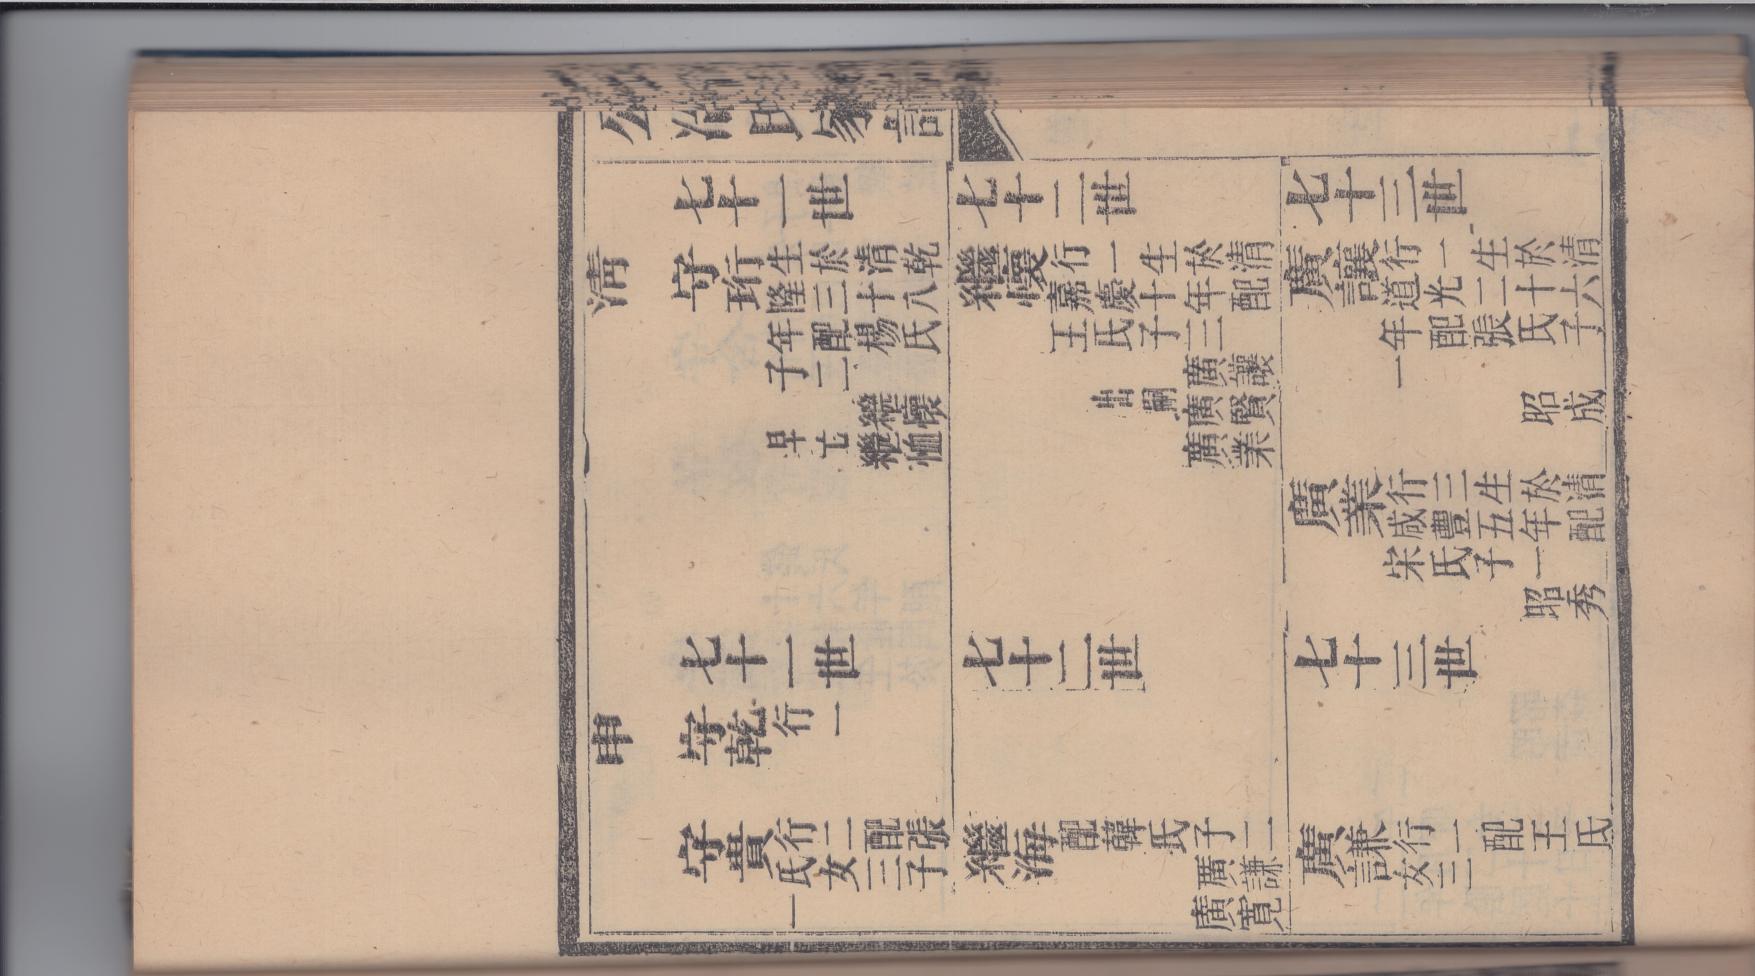 公冶氏家譜
七十一世
七十二世
七十三世
清
守珩
行生於清乾
隆三十八
年配楊氏
子二
繼懷
繼恤
早亡
繼懷
行一生於清
嘉慶十年配
王氏子三
廣讓
廣賢
出嗣
廣業
廣讓
行一生於清
道光二十六
年配張氏子
一
昭成
廣業
行三生於清
咸豐五年配
宋氏子一
昭秀
七十一世
七十二世
七十三世
申
守乾
行一
守貴
行二配張
氏女三子
一
繼海
配韓氏子二
廣謙
廣寬
廣謙
行一配王氏
女三